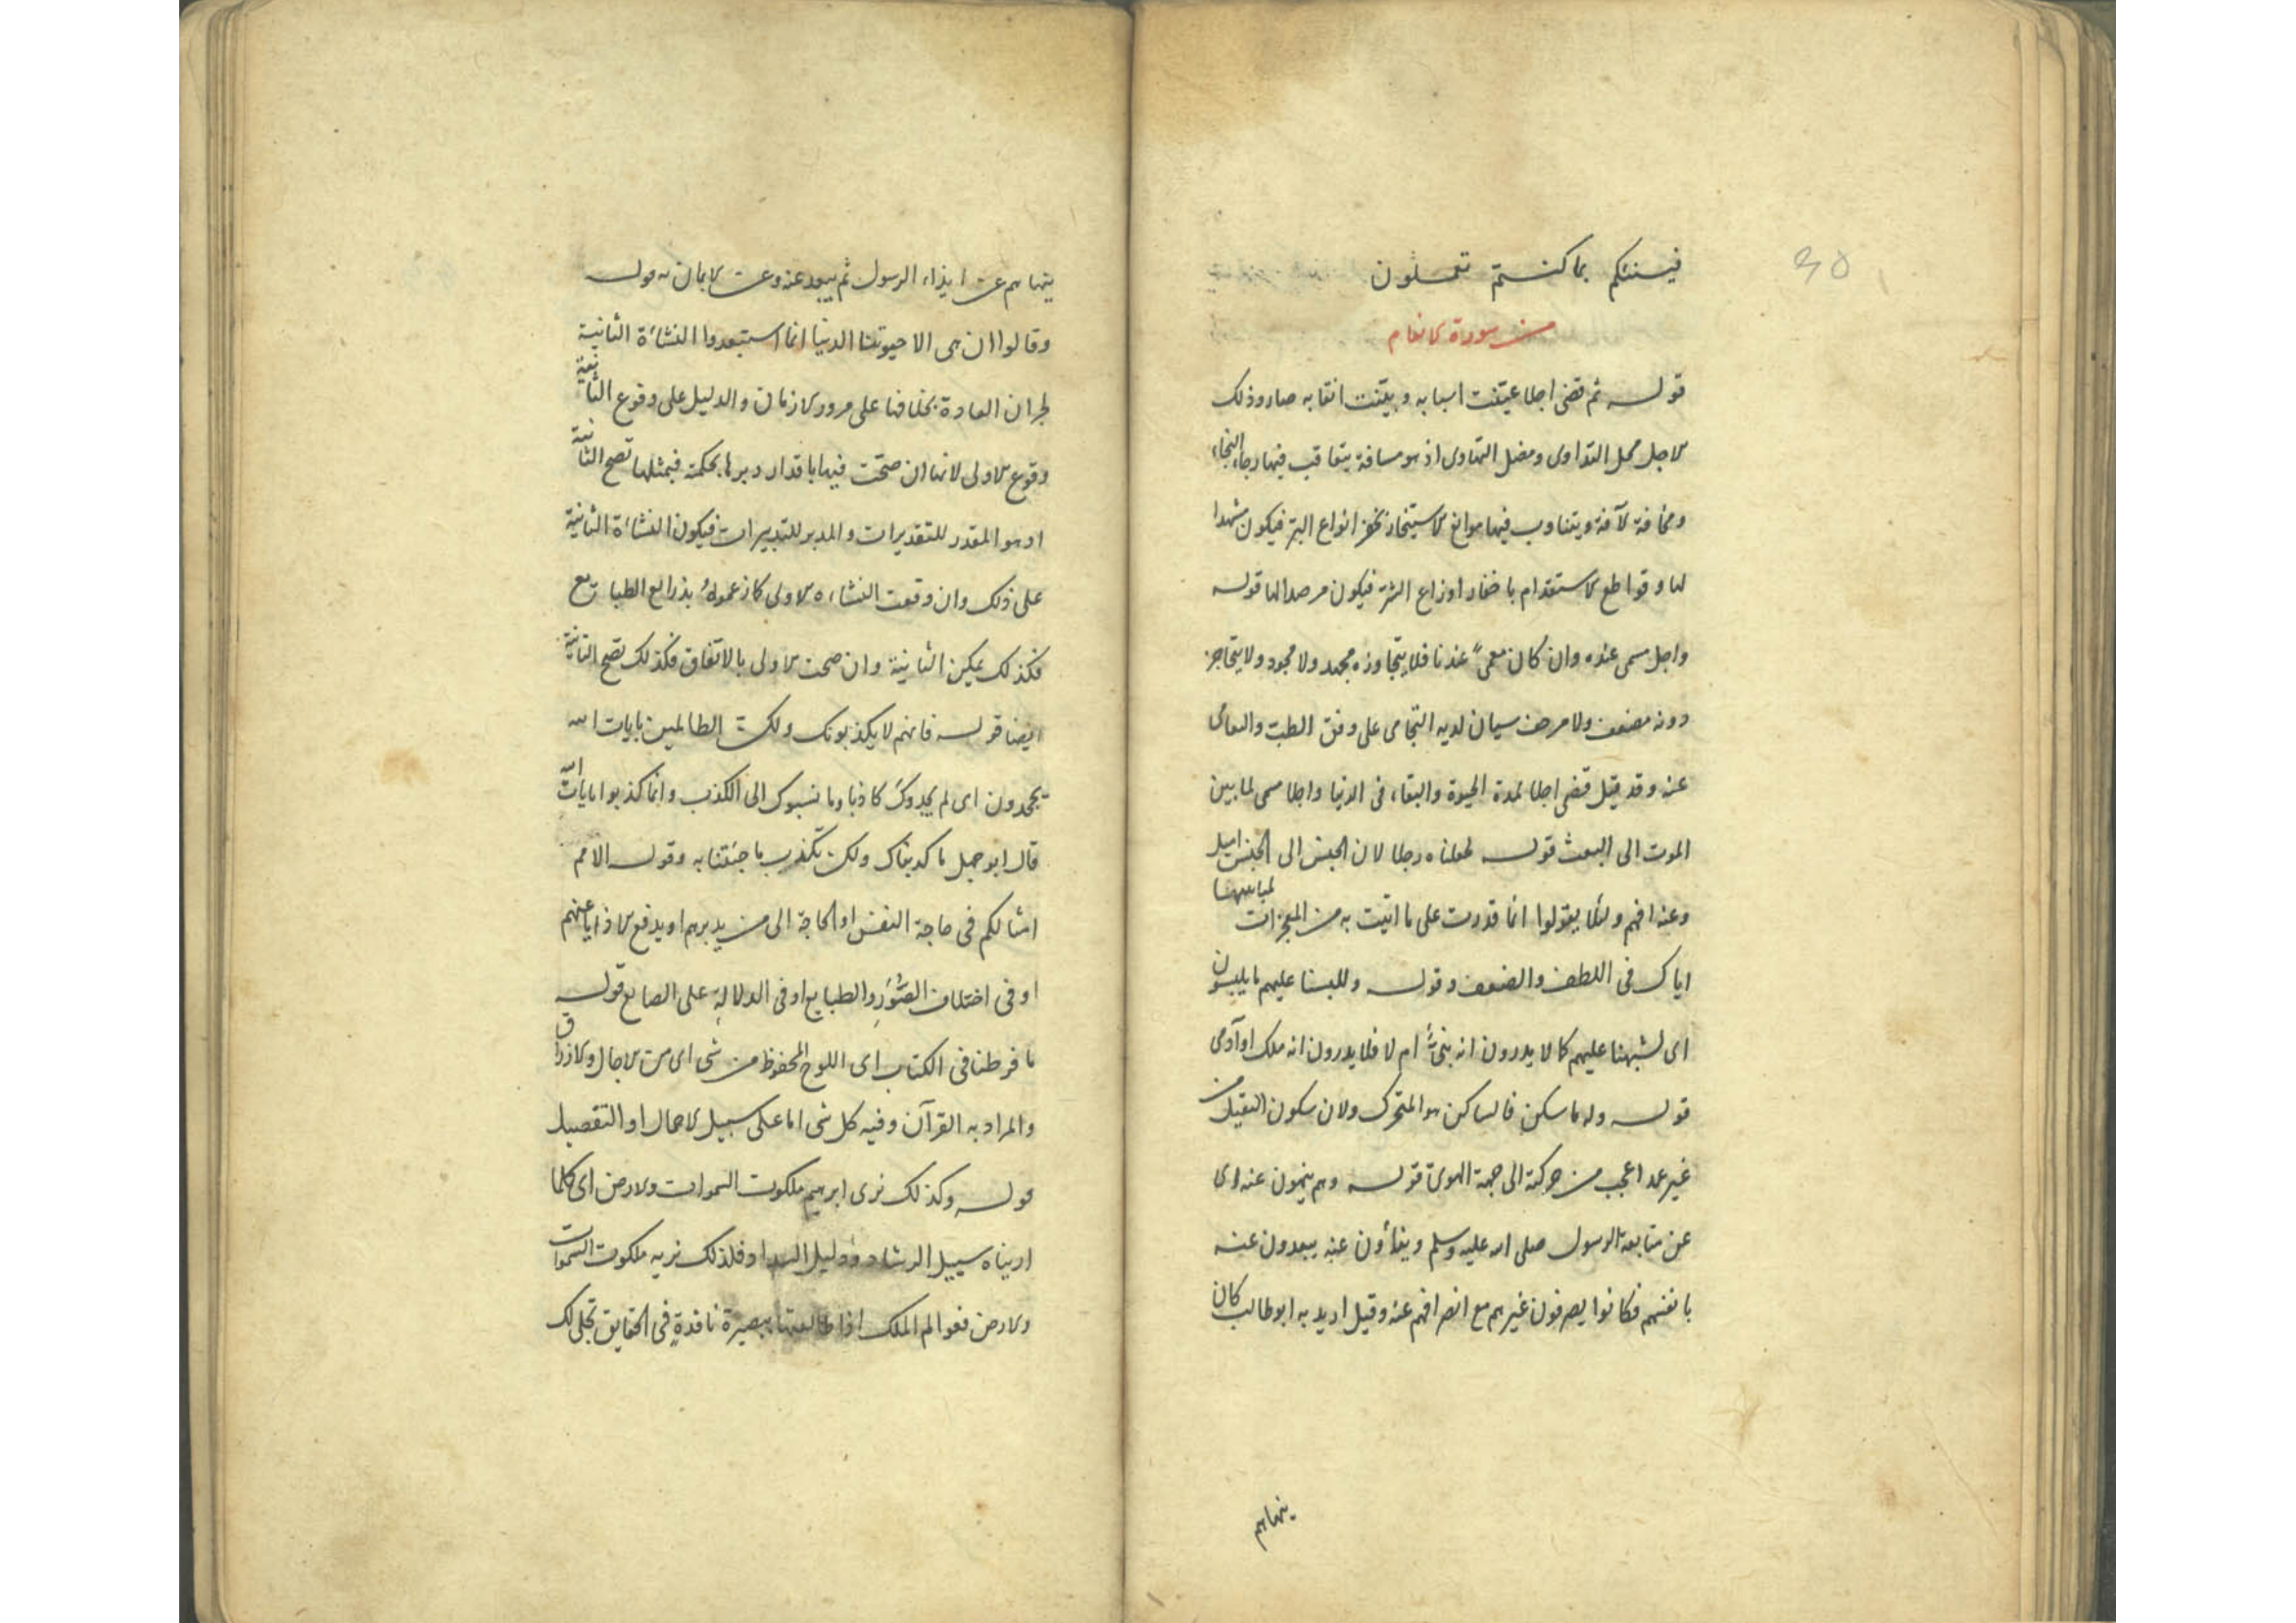 فينبئكم بما كنتم تعملون
من سورة الانعام
قوله ثم قضى اجلا عيّنت اسبابه وبيّنت القابه صار وذلك
الاجل محل التداوى ومضل التهاوى اذ هو مسافة يتعاقب فيها رجاء النجاء
ومخافة الآفة ويتناوب فيها موانع الاستيخار بخفز انواع البر فيكون مشهدا
لها وقواطع الاستقدام باخفار اوزاع الشر فيكون مرصدا لها قوله
واجل مسمى عنده وان كان معمىً عندنا فلا يتجاوزه مجهد ولا مجود ولا يتحاجز
دونه مضعف ولا مرهف سيان لديه التجامى على وفق الطب والتعامى
عنه وقد قيل قضى اجلا لمدة الحيوة والبقاء فى الدنيا واجلا مسمى لما بين
الموت الى البعث قوله لجعلناه رجلا لان الجنس الى الجنس اميل
وعنه افهم ولئلا يقولوا انما قدرت على ما اتيت به من المعجزات لمباينها
اياك فى اللطف والضعف وقوله وللبسنا عليهم ما يلبسون
اى لشبهنا عليهم كما لا يدرون انه نبىٌّ ام لا فلا يدرون انه ملك او آدمى
قوله وله ما سكن فالساكن هو المتحرك ولان سكون الثقيل من
غير عمد اعجب من حركته الى جهة الهوىّ قوله وهم ينهون عنه اى
عن متابعة الرسول صلى الله عليه وسلم وينأون عنه يبعدون عنه
بانفسهم فكانوا يصرفون غيرهم مع انصرافهم عنه وقيل اريد به ابو طالب كان
ينهاهم
ينهاهم عن ايذاء الرسول ثم يبعد عنه وعن الايمان به قوله
وقالوا ان هى الا حيوتنا الدنيا انما استبعدوا النشاءة الثانية
لجران العادة بخلافها على مرور الازمان والدليل على وقوع الثانية
وقوع الاولى لانها ان صحّت فيها باقدار دبرها بحكمة فبمثلها تصح الثانية
اذ هو المقدر للتقديرات والمدبر للتدبيرات فيكون النشاءة الثانية
على ذلك وان وقعت النشاءه الاولى كما زعموهُ بذرايع الطبايع
فكذلك يمكن الثانية وان صحت الاولى بالاتفاق فكذلك تصح الثانية
ايضا قوله فانهم لا يكذبونك ولكن الظالمين بايات الله
يجحدون اى لم يجدوك كاذبا وما نسبوك الى الكذب وانما كذبوا بايات الله
قال ابو جهل ما كذبناك ولكن نكذب ما جئتنا به وقوله الا امم
امثالكم فى حاجة النفس او الحاجة الى من يدبرهم او يدفع الاذايا عنهم
او فى اختلاف الصُّوَر والطبايع او فى الدلالة على الصانع قوله
ما فرطنا فى الكتاب اى اللوح المحفوظ من شى اى من الاجال والارزاق
والمراد به القرآن وفيه كل شى اما على سبيل الاجمال او التفصيل
قوله وكذلك نرى ابرهيم ملكوت السموات والارض اى كما
اريناه سبيل الرشاد ودليل السداد فلذلك نريه ملكوت السموات
والارض فعوالم الملك اذا طالعتها ببصيرة نافذةٍ فى الحقايق تجلى لك